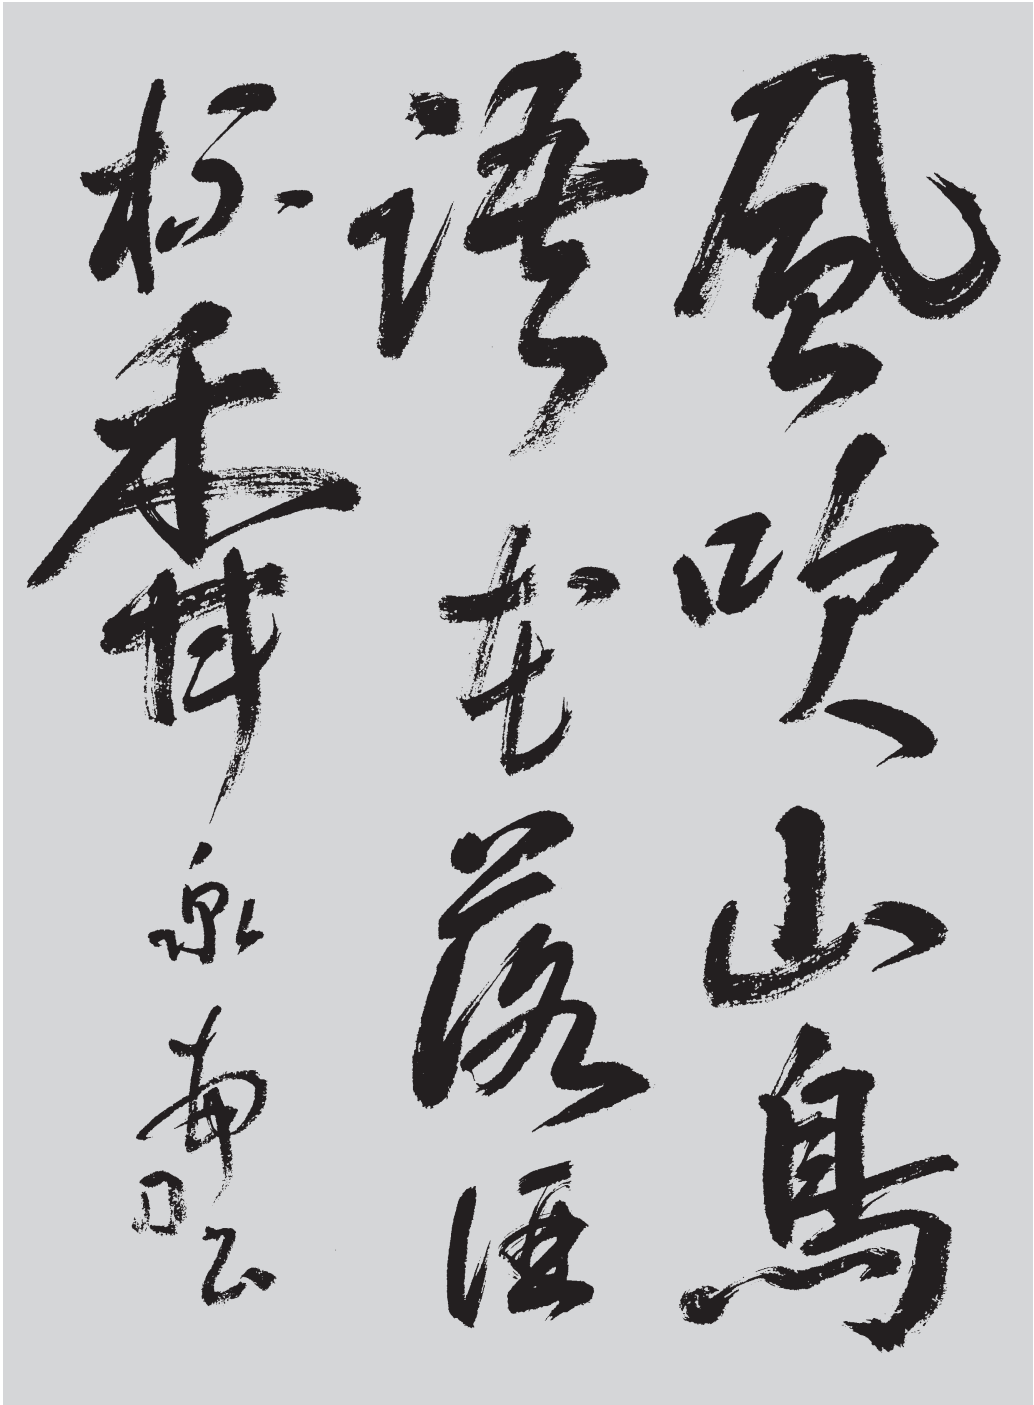 風吹山鳥
語花落酒
杯香 泉